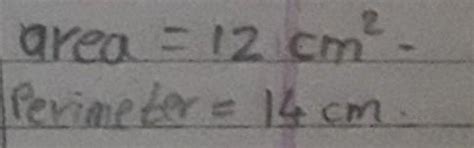 area = 12 cm² -
Perimeter = 14 cm.